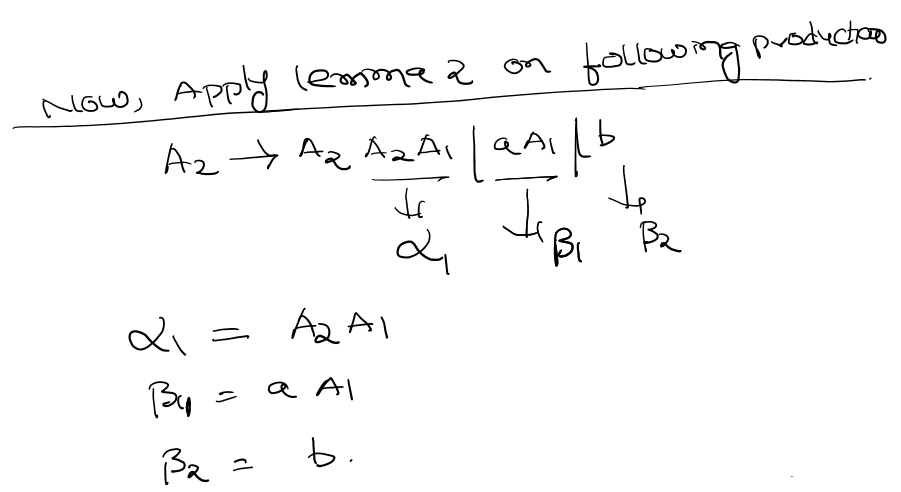 Now, Apply lemma 2 on following production
A2 → A2 A2A1 | aA1 | b
α1 β1 β2
α1 = A2A1
β1 = a A1
β2 = b.